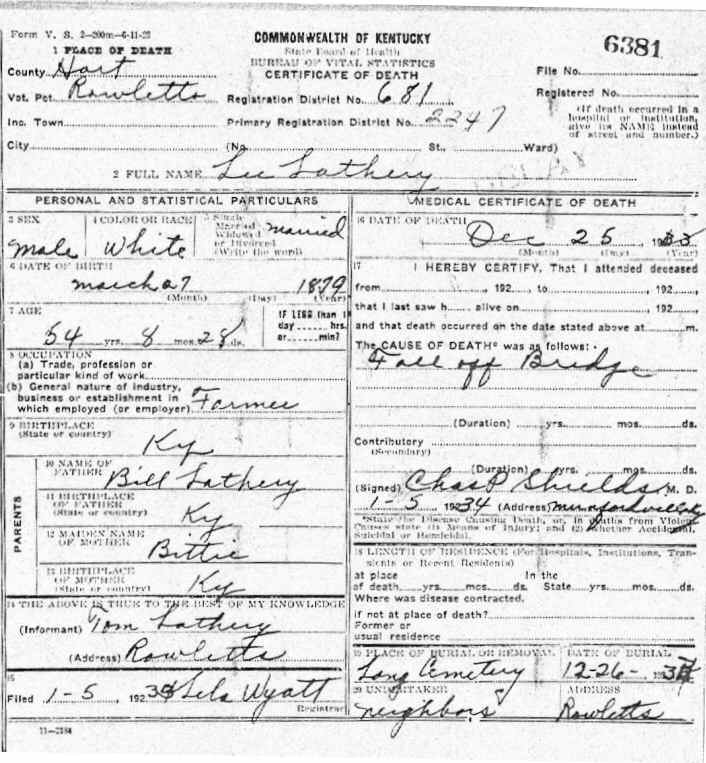 Form V. S. 2-200m-6-11-23
COMMONWEALTH OF KENTUCKY
State Board of Health
BUREAU OF VITAL STATISTICS
CERTIFICATE OF DEATH
6381
1 PLACE OF DEATH
County Hart
Vot. Pct. Rowletts
Inc. Town
City
Registration District No. 681
Primary Registration District No. 2247
(No. St., Ward)
File No.
Registered No.
(If death occurred in a
hospital or institution,
give its NAME instead
of street and number.)
2 FULL NAME Lee Lathery
PERSONAL AND STATISTICAL PARTICULARS
3 SEX
Male
4 COLOR OR RACE
White
5 Single
Married
Widowed
or Divorced
(Write the word)
Married
6 DATE OF BIRTH
March 27 1879
(Month) (Day) (Year)
7 AGE
54 yrs. 8 mos. 28 ds.
IF LESS than 1
day ...... hrs.
or ...... min?
8 OCCUPATION
(a) Trade, profession or
particular kind of work
(b) General nature of industry,
business or establishment in
which employed (or employer) Farmer
9 BIRTHPLACE
(State or country)
Ky
PARENTS
10 NAME OF
FATHER
Bill Lathery
11 BIRTHPLACE
OF FATHER
(State or country)
Ky
12 MAIDEN NAME
OF MOTHER
Bittie
13 BIRTHPLACE
OF MOTHER
(State or country)
Ky
14 THE ABOVE IS TRUE TO THE BEST OF MY KNOWLEDGE
(Informant) Tom Lathery
(Address) Rowletts
15
Filed 1-5 1934 Lela Wyatt
Registrar
11-2184
MEDICAL CERTIFICATE OF DEATH
16 DATE OF DEATH
Dec 25 1933
(Month) (Day) (Year)
17 I HEREBY CERTIFY, That I attended deceased
from , 192 , to , 192 ,
that I last saw h alive on , 192 ,
and that death occurred on the date stated above at m.
The CAUSE OF DEATH* was as follows:
Fall off Bridge
(Duration) yrs. mos. ds.
Contributory
(Secondary)
(Duration) yrs. mos. ds.
(Signed) Chas P Shields M. D.
1-5 1934 (Address) Munfordville Ky
*State the Disease Causing Death, or, in deaths from Violent
Causes state (1) Means of Injury; and (2) whether Accidental,
Suicidal or Homicidal.
18 LENGTH OF RESIDENCE (For Hospitals, Institutions, Tran-
sients or Recent Residents)
at place In the
of death yrs. mos. ds. State yrs. mos. ds.
Where was disease contracted.
if not at place of death?
Former or
usual residence
19 PLACE OF BURIAL OR REMOVAL
Long Cemetery
DATE OF BURIAL
12-26-
20 UNDERTAKER
neighbors
ADDRESS
Rowletts